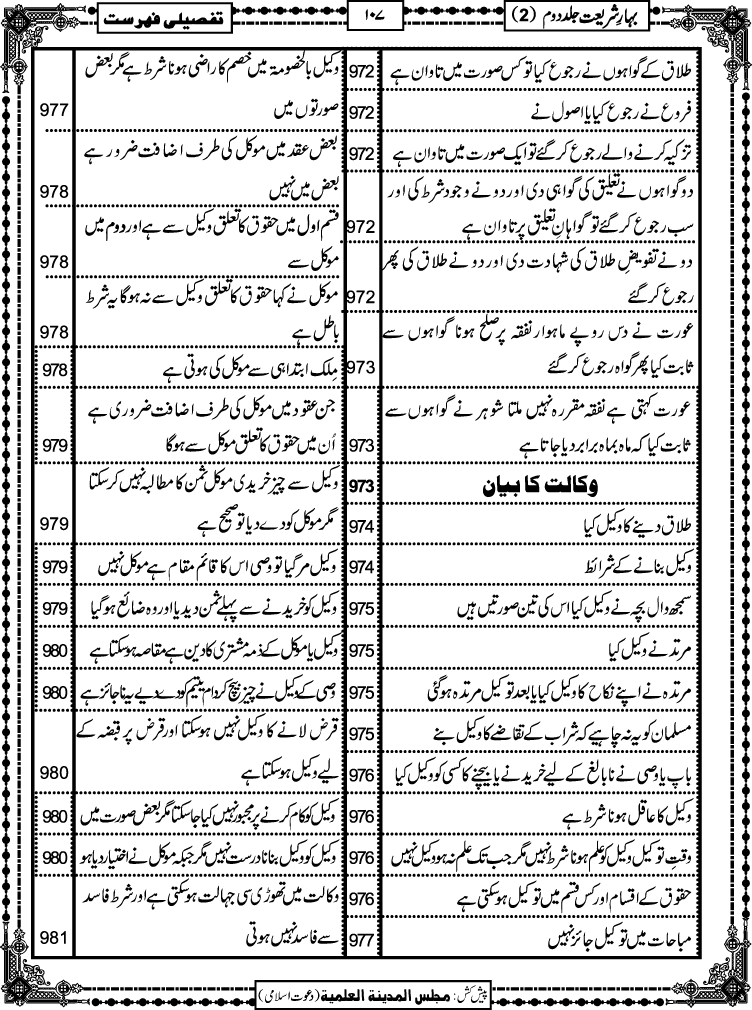 بہارِ شریعت جلد دوم (2)
۱۰۷
تفصیلی فہرست
طلاق کے گواہوں نے رجوع کیا تو کس صورت میں تاوان ہے 972
فروع نے رجوع کیا یا اصول نے 972
تزکیہ کرنے والے رجوع کرگئے تو ایک صورت میں تاوان ہے 972
دو گواہوں نے تعلیق کی گواہی دی اور دو نے وجود شرط کی اور
سب رجوع کرگئے تو گواہانِ تعلیق پر تاوان ہے 972
دو نے تفویضِ طلاق کی شہادت دی اور دو نے طلاق کی پھر
رجوع کرگئے 972
عورت نے دس روپے ماہوار نفقہ پر صلح ہونا گواہوں سے
ثابت کیا پھر گواہ رجوع کرگئے 973
عورت کہتی ہے نفقہ مقررہ نہیں ملتا شوہر نے گواہوں سے
ثابت کیا کہ ماہ بماہ برابر دیا جاتا ہے 973
وکالت کا بیان 973
طلاق دینے کا وکیل کیا 974
وکیل بنانے کے شرائط 974
سمجھ وال بچہ نے وکیل کیا اس کی تین صورتیں ہیں 975
مرتد نے وکیل کیا 975
مرتدہ نے اپنے نکاح کا وکیل کیا یا بعد توکیل مرتدہ ہوگئی 975
مسلمان کو یہ نہ چاہیے کہ شراب کے تقاضے کا وکیل بنے 975
باپ یا وصی نے نابالغ کے لیے خریدنے یا بیچنے کا کسی کو وکیل کیا 976
وکیل کا عاقل ہونا شرط ہے 976
وقتِ توکیل وکیل کو علم ہونا شرط نہیں مگر جب تک علم نہ ہو وکیل نہیں 976
حقوق کے اقسام اور کس قسم میں توکیل ہوسکتی ہے 976
مباحات میں توکیل جائز نہیں 977
وکیل بالخصومۃ میں خصم کا راضی ہونا شرط ہے مگر بعض
صورتوں میں 977
بعض عقد میں موکل کی طرف اضافت ضرور ہے
بعض میں نہیں 978
قسم اول میں حقوق کا تعلق وکیل سے ہے اور دوم میں
موکل سے 978
موکل نے کہا حقوق کا تعلق وکیل سے نہ ہوگا یہ شرط
باطل ہے 978
مِلک ابتدا ہی سے موکل کی ہوتی ہے 978
جن عقود میں موکل کی طرف اضافت ضروری ہے
اُن میں حقوق کا تعلق موکل سے ہوگا 979
وکیل سے چیز خریدی موکل ثمن کا مطالبہ نہیں کرسکتا
مگر موکل کو دے دیا تو صحیح ہے 979
وکیل مرگیا تو وصی اس کا قائم مقام ہے موکل نہیں 979
وکیل کو خریدنے سے پہلے ثمن دیدیا اور وہ ضائع ہوگیا 979
وکیل یا موکل کے ذمہ مشتری کا دین ہے مقاصہ ہوسکتا ہے 980
وصی کے وکیل نے چیز بیچ کر دام یتیم کو دے دیے یہ ناجائز ہے 980
قرض لانے کا وکیل نہیں ہوسکتا اور قرض پر قبضہ کے
لیے وکیل ہوسکتا ہے 980
وکیل کو کام کرنے پر مجبور نہیں کیا جاسکتا مگر بعض صورت میں 980
وکیل کو وکیل بنانا درست نہیں مگر جبکہ موکل نے اختیار دیا ہو 980
وکالت میں تھوڑی سی جہالت ہوسکتی ہے اور شرط فاسد
سے فاسد نہیں ہوتی 981
پیش کش: مجلس المدینۃ العلمیۃ (دعوتِ اسلامی)